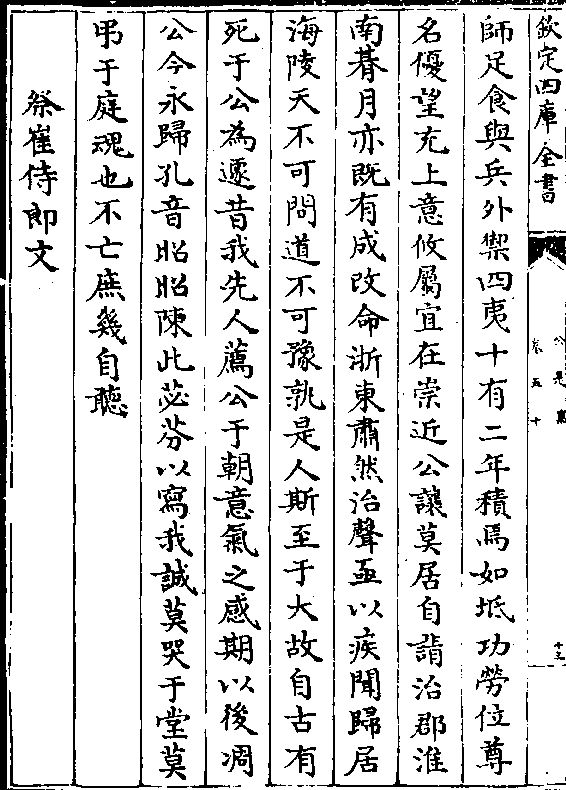 欽定四庫全書
公是集
卷五十
師足食與兵外禦四夷十有二年積焉如坻功勞位尊
名優望充上意攸屬宜在崇近公讓莫居自請治郡淮
南朞月亦既有成改命浙東肅然治聲亟以疾聞歸居
海陵天不可問道不可豫孰是人斯至于大故自古有
死于公為遽昔我先人薦公于朝意氣之感期以後凋
公今永歸孔音昭昭陳此苾芬以寫我誠莫哭于堂莫
弔于庭魂也不亡庶幾自聽
祭崔侍郎文